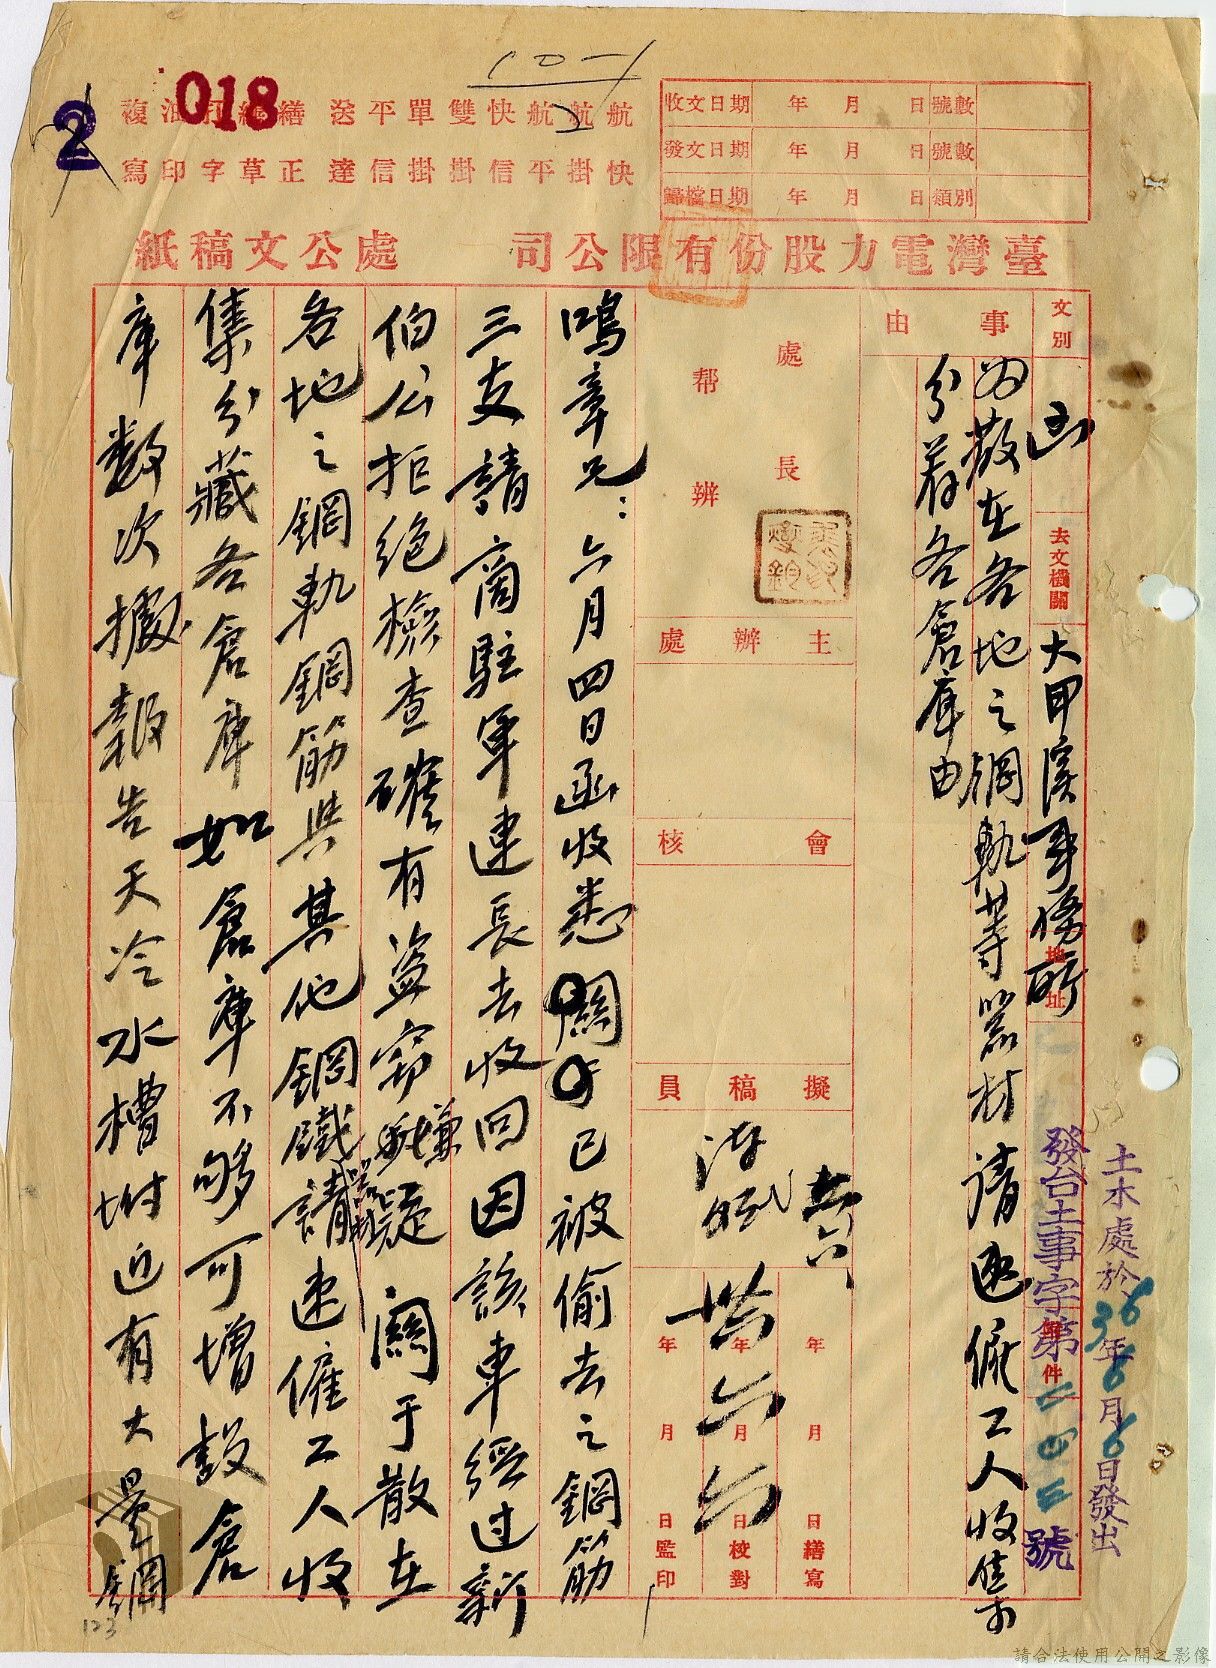 018
2
航航航快雙單平送繕
快掛平信掛掛信達正草字印寫
收文日期 年 月 日 號數
發文日期 年 月 日 號數
歸檔日期 年 月 日 類別
臺灣電力股份有限公司 處公文稿紙
文別 函
去文機關 大甲溪事務所
地址
附件
土木處於36年6月6日發出
發台土事字第二四三號
事由
為散在各地之鋼軌等器材請速僱工人收集
分存各倉庫由
處長
幫辦
主辦處
會核
擬稿員
年 月 日繕寫
年 月 日校對
年 月 日監印
卅六六六
鳴章兄：六月四日函收悉關於已被偷去之鋼筋
三支請商駐軍連長去收回因該車經過新
伯公拒絕檢查確有盜竊嫌疑關于散在
各地之鋼軌鋼筋與其他鋼鐵器材請速僱工人收
集分藏各倉庫如倉庫不夠可增設倉
庫數次據報告天冷水槽附近有大量鋼
123
請合法使用公開之影像